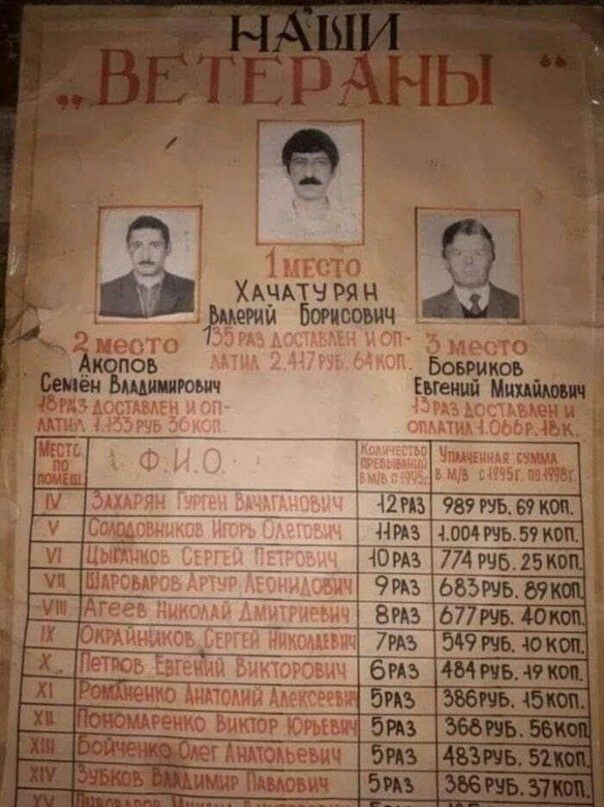 НАШИ
„ВЕТЕРАНЫ“
1 место
ХАЧАТУРЯН
ВАЛЕРИЙ БОРИСОВИЧ
135 РАЗ ДОСТАВЛЕН И ОП-
ЛАТИЛ 2.417 РУБ. 64 КОП.
2 место
АКОПОВ
СЕМЁН ВЛАДИМИРОВИЧ
18 РАЗ ДОСТАВЛЕН И ОП-
ЛАТИЛ 1.133 РУБ 36 КОП.
3 место
БОБРИКОВ
ЕВГЕНИЙ МИХАЙЛОВИЧ
13 РАЗ ДОСТАВЛЕН И
ОПЛАТИЛ 1.066 Р. 18 К.
МЕСТО ПО ПОМЕЩ. Ф.И.О. КОЛИЧЕСТВО ПРЕБЫВАНИЙ В М/В С 1995г. УПЛАЧЕННАЯ СУММА В М/В С 1995г. ПО 1998г.
IV ЗАХАРЯН ГУРГЕН ВАЧАГАНОВИЧ 12 РАЗ 989 РУБ. 69 КОП.
V СОЛОДОВНИКОВ ИГОРЬ ОЛЕГОВИЧ 11 РАЗ 1.004 РУБ. 59 КОП.
VI ЦЫГАНКОВ СЕРГЕЙ ПЕТРОВИЧ 10 РАЗ 774 РУБ. 25 КОП.
VII ШАРОВАРОВ АРТУР ЛЕОНИДОВИЧ 9 РАЗ 683 РУБ. 89 КОП.
VIII АГЕЕВ НИКОЛАЙ ДМИТРИЕВИЧ 8 РАЗ 677 РУБ. 40 КОП.
IX ОКРАЙНИКОВ СЕРГЕЙ НИКОЛАЕВИЧ 7 РАЗ 549 РУБ. 10 КОП.
X ПЕТРОВ ЕВГЕНИЙ ВИКТОРОВИЧ 6 РАЗ 484 РУБ. 19 КОП.
XI РОМАНЕНКО АНАТОЛИЙ АЛЕКСЕЕВИЧ 5 РАЗ 386 РУБ. 15 КОП.
XII ПОНОМАРЕНКО ВИКТОР ЮРЬЕВИЧ 5 РАЗ 368 РУБ. 56 КОП
XIII БОЙЧЕНКО ОЛЕГ АНАТОЛЬЕВИЧ 5 РАЗ 483 РУБ. 52 КОП.
XIV ЗУБКОВ ВЛАДИМИР ПАВЛОВИЧ 5 РАЗ 386 РУБ. 37 КОП.
XV